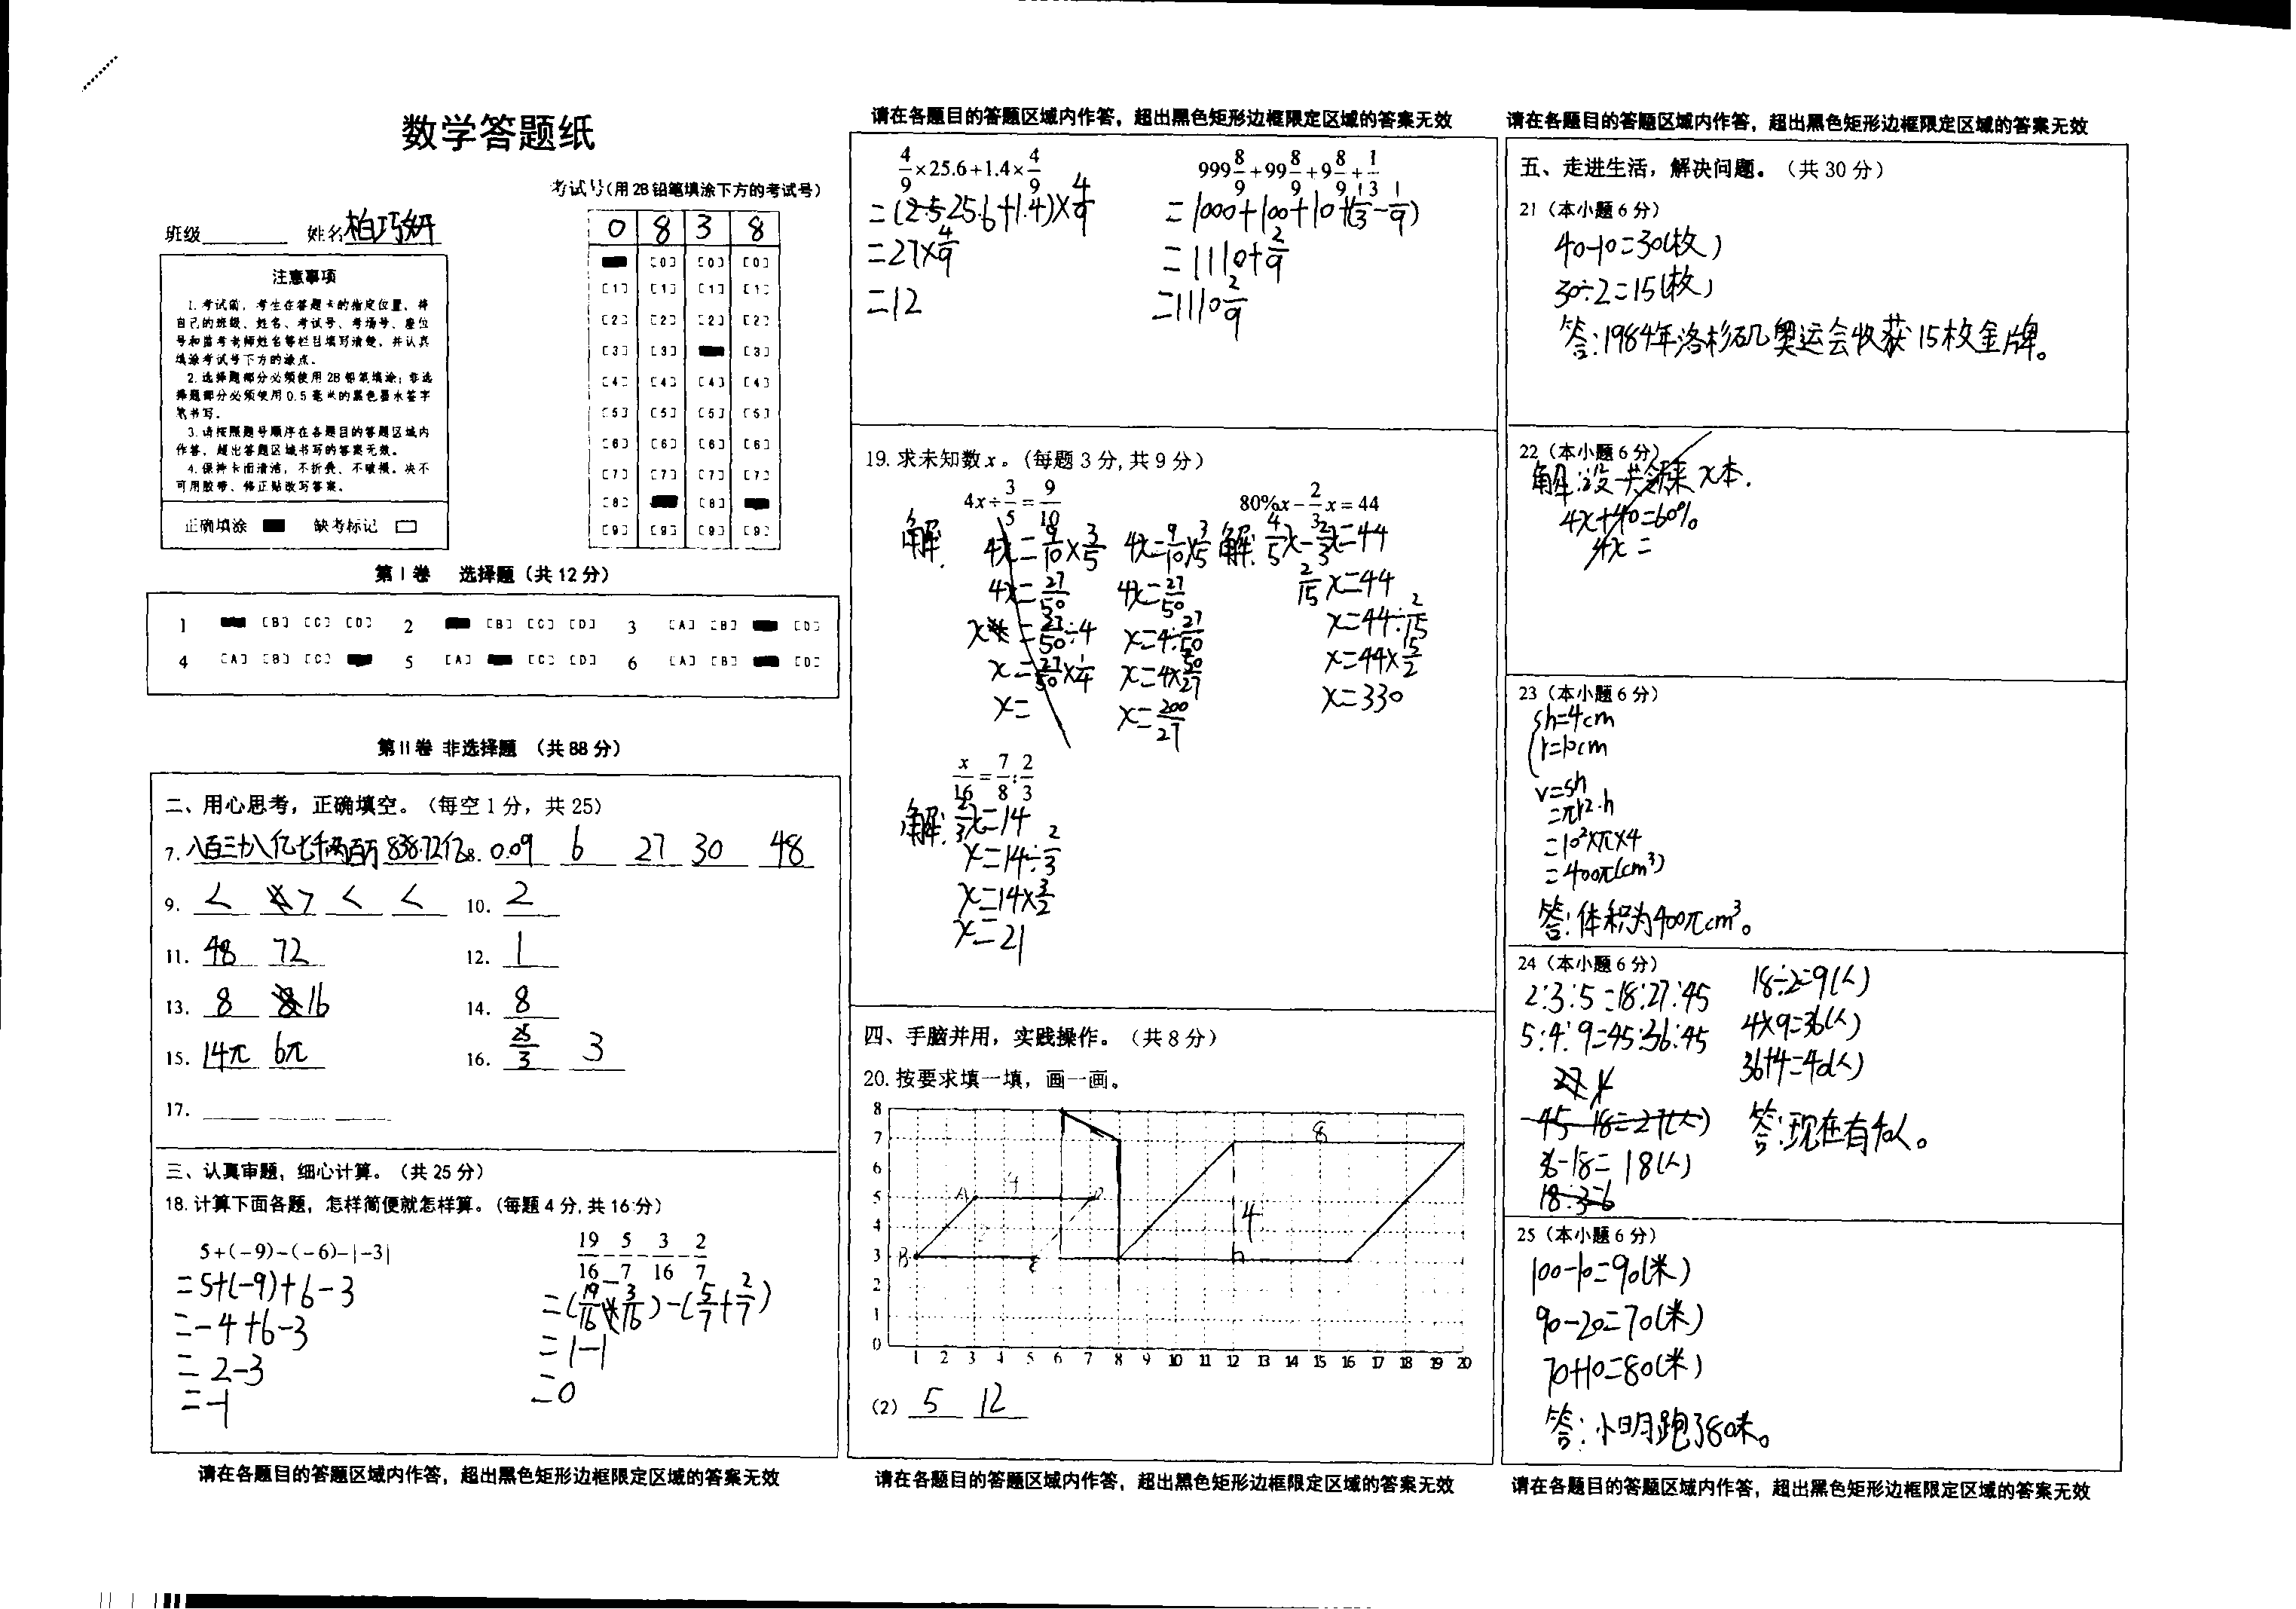 数学答题纸
考试号(用2B铅笔填涂下方的考试号)
班级 姓名 柏巧妍
0 8 3 8
注意事项
1.考试前，考生在答题卡的指定位置，将
自己的班级、姓名、考试号、考场号、座位
号和监考老师姓名等栏目填写清楚，并认真
填涂考试号下方的涂点。
2.选择题部分必须使用2B铅笔填涂；非选
择题部分必须使用0.5毫米的黑色墨水签字
笔书写。
3.请按照题号顺序在各题目的答题区域内
作答，超出答题区域书写的答案无效。
4.保持卡面清洁，不折叠、不破损。决不
可用胶带、修正贴改写答案。
正确填涂 缺考标记
[0] [0] [0]
[1] [1] [1] [1]
[2] [2] [2] [2]
[3] [3] [3]
[4] [4] [4] [4]
[5] [5] [5] [5]
[6] [6] [6] [6]
[7] [7] [7] [7]
[8] [8]
[9] [9] [9] [9]
第Ⅰ卷 选择题（共12分）
1 [B] [C] [D] 2 [B] [C] [D] 3 [A] [B] [D]
4 [A] [B] [C] 5 [A] [C] [D] 6 [A] [B] [D]
第Ⅱ卷 非选择题 （共88分）
二、用心思考，正确填空。（每空1分，共25）
7. 八百三十八亿七千两百万 838.72亿 8. 0.09 6 27 30 48
9. < > < < 10. 2
11. 48 72 12. 1
13. 8 16 14. 8
15. 14π 6π 16. 25/3 3
17.
三、认真审题，细心计算。（共25分）
18.计算下面各题，怎样简便就怎样算。（每题4分,共16分）
5+(−9)−(−6)−|−3|
=5+(-9)+6-3
=-4+6-3
=2-3
=-1
19/16−5/7−3/16−2/7
=(19/16-3/16)-(5/7+2/7)
=1-1
=0
请在各题目的答题区域内作答，超出黑色矩形边框限定区域的答案无效
请在各题目的答题区域内作答，超出黑色矩形边框限定区域的答案无效
4/9×25.6+1.4×4/9
=(25.6+1.4)×4/9
=27×4/9
=12
999 8/9+99 8/9+9 8/9+1/3
=1000+100+10+(1/3-1/9)
=1110+2/9
=1110 2/9
19.求未知数x。（每题3分,共9分）
4x÷3/5=9/10
解:
4x=9/10×3/5
4x=27/50
x=27/50÷4
x=27/50×1/4
x=
4x=9/10×3/5
4x=27/50
x=4÷27/50
x=4×50/27
x=200/27
80%x−2/3x=44
解: 4/5x-2/3x=44
2/15x=44
x=44÷2/15
x=44×15/2
x=330
x/16=7/8:2/3
解: 2/3x=14
x=14÷2/3
x=14×3/2
x=21
四、手脑并用，实践操作。（共8分）
20.按要求填一填，画一画。
8
7
6
5
4
3
2
1
0
A 4 D
B C
8
4
h
1 2 3 4 5 6 7 8 9 10 11 12 13 14 15 16 17 18 19 20
(2) 5 12
请在各题目的答题区域内作答，超出黑色矩形边框限定区域的答案无效
请在各题目的答题区域内作答，超出黑色矩形边框限定区域的答案无效
五、走进生活，解决问题。（共30分）
21（本小题6分）
40-10=30(枚)
30÷2=15(枚)
答:1984年洛杉矶奥运会收获15枚金牌。
22（本小题6分）
解:设一共领来x本.
4x+40=60%
4x=
23（本小题6分）
h=4cm
r=10cm
V=sh
=πr²·h
=10²×π×4
=400π(cm³)
答:体积为400πcm³。
24（本小题6分）
2:3:5=18:27:45
5:4:9=45:36:45
45-18=27(人)
36-18=18(人)
18÷3=6
18÷2=9(人)
4×9=36(人)
36+4=40(人)
答:现在有40人。
25（本小题6分）
100-10=90(米)
90-20=70(米)
70+10=80(米)
答:小明跑了80米。
请在各题目的答题区域内作答，超出黑色矩形边框限定区域的答案无效